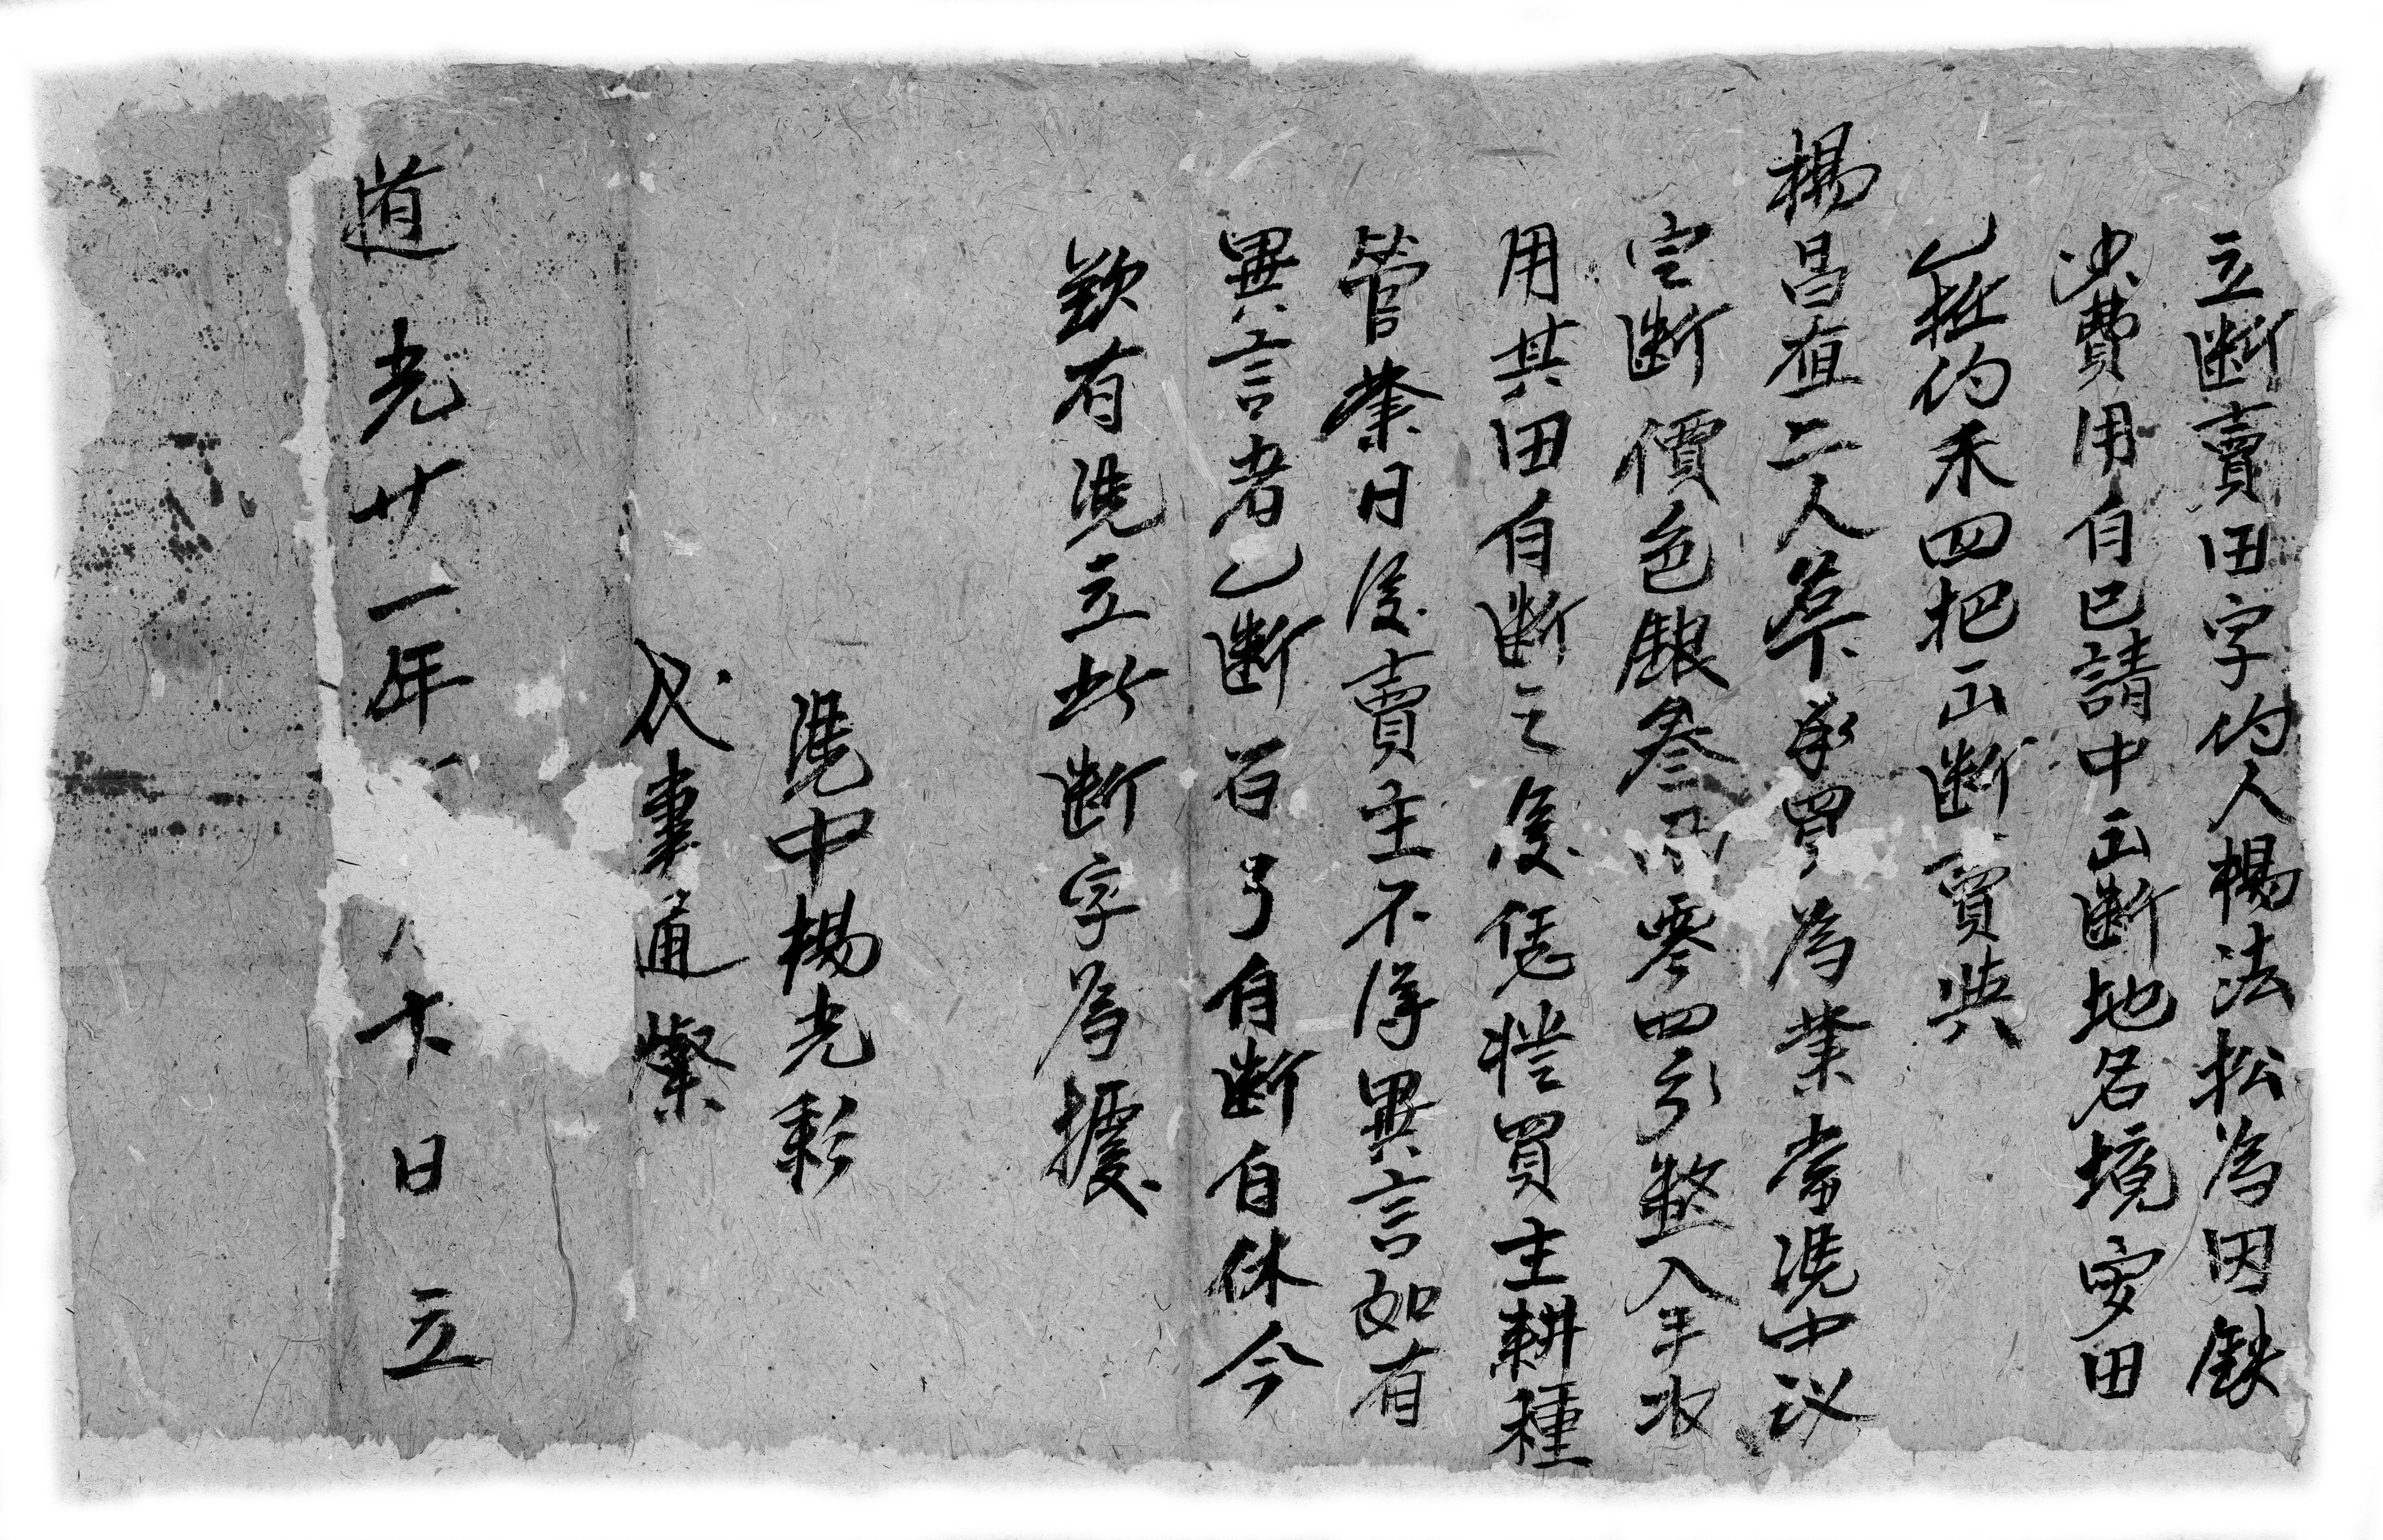 立断賣田字约人楊法松為因缺
少費用自己請中正断地名境安田
乙坵约禾四把正断賣與
楊昌直二人名下承買為業當凴中议
定断價色銀叁兩零四分整入手收
用其田自断之後恁凴買主耕種
管業日後賣主不得異言如有
異言者乙断百了自断自休今
欲有凴立此断字為據
凴中楊光彩
代書通燦
道光廿一年 十日立